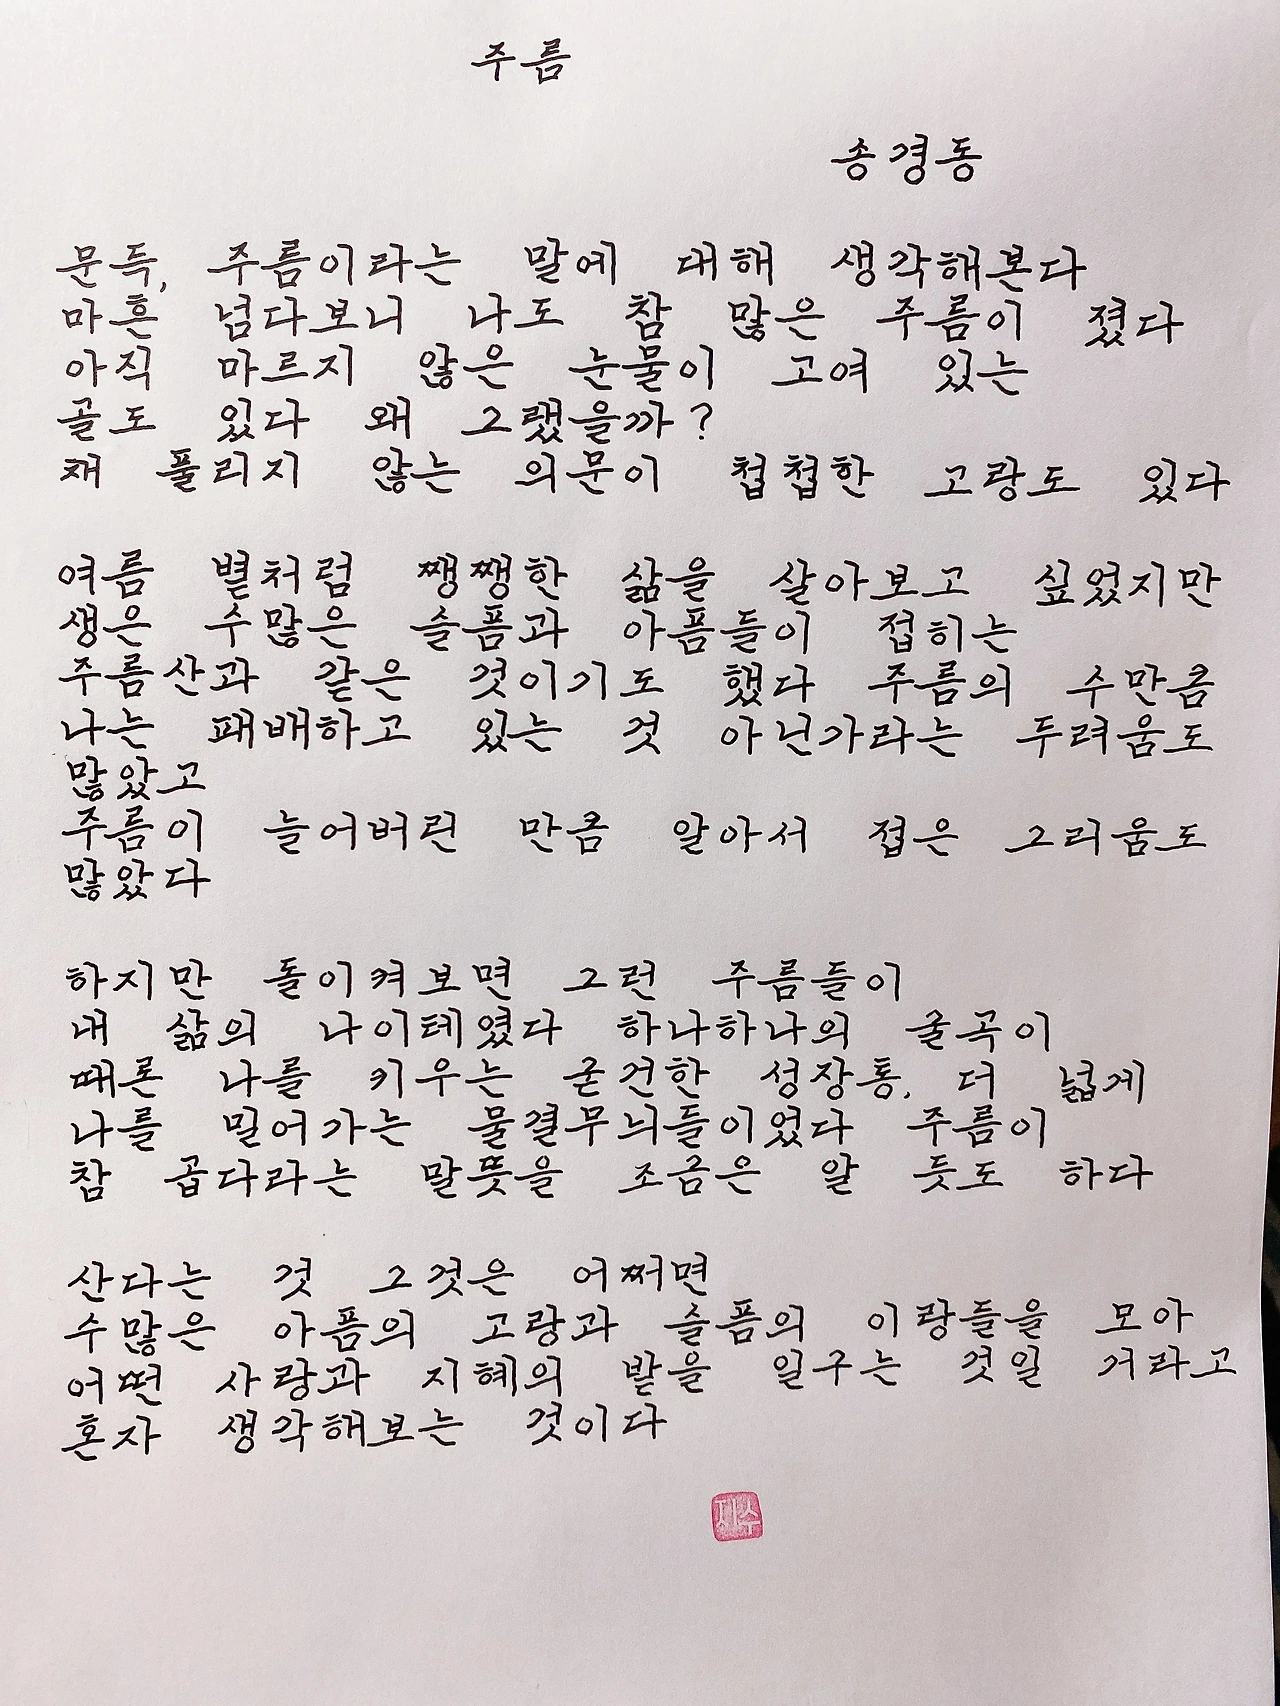 주름
송경동
문득, 주름이라는 말에 대해 생각해본다
마흔 넘다보니 나도 참 많은 주름이 졌다
아직 마르지 않은 눈물이 고여 있는
골도 있다 왜 그랬을까?
채 풀리지 않는 의문이 첩첩한 고랑도 있다
여름 볕처럼 쨍쨍한 삶을 살아보고 싶었지만
생은 수많은 슬픔과 아픔들이 접히는
주름산과 같은 것이기도 했다 주름의 수만큼
나는 패배하고 있는 것 아닌가라는 두려움도
많았고
주름이 늘어버린 만큼 알아서 접은 그리움도
많았다
하지만 돌이켜보면 그런 주름들이
내 삶의 나이테였다 하나하나의 굴곡이
때론 나를 키우는 굳건한 성장통, 더 넓게
나를 밀어가는 물결무늬들이었다 주름이
참 곱다라는 말뜻을 조금은 알 듯도 하다
산다는 것 그것은 어쩌면
수많은 아픔의 고랑과 슬픔의 이랑들을 모아
어떤 사랑과 지혜의 밭을 일구는 것일 거라고
혼자 생각해보는 것이다
재수